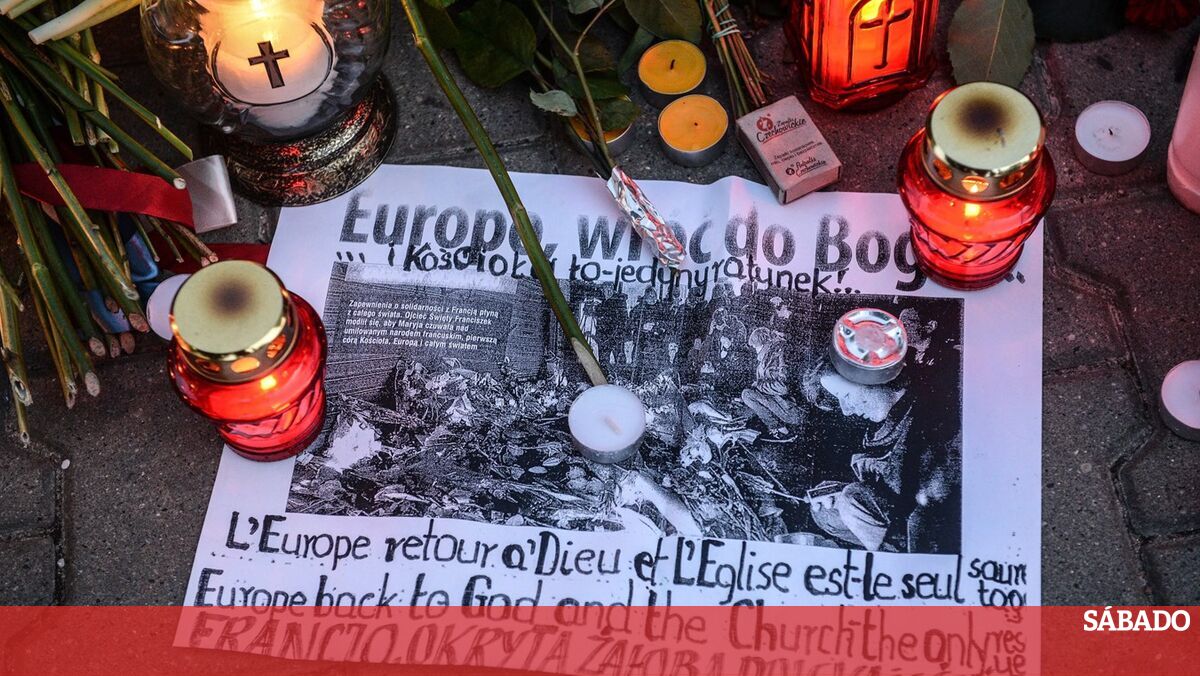 Europo, wróć do Bog
... i Kościoła, to-jedyny ratunek!..
Zapewnienia o solidarności z Francją płyną
z całego świata. Ojciec Święty Franciszek
modlił się, aby Maryja czuwała nad
umiłowanym narodem francuskim, pierwszą
córą Kościoła, Europą i całym światem
L'Europe retour a'Dieu et L'Eglise est-le seul
Europe back to God and the Church the only
FRANCJO, UKRYTA ŻAŁOBĄ
Czechowickie
SÁBADO